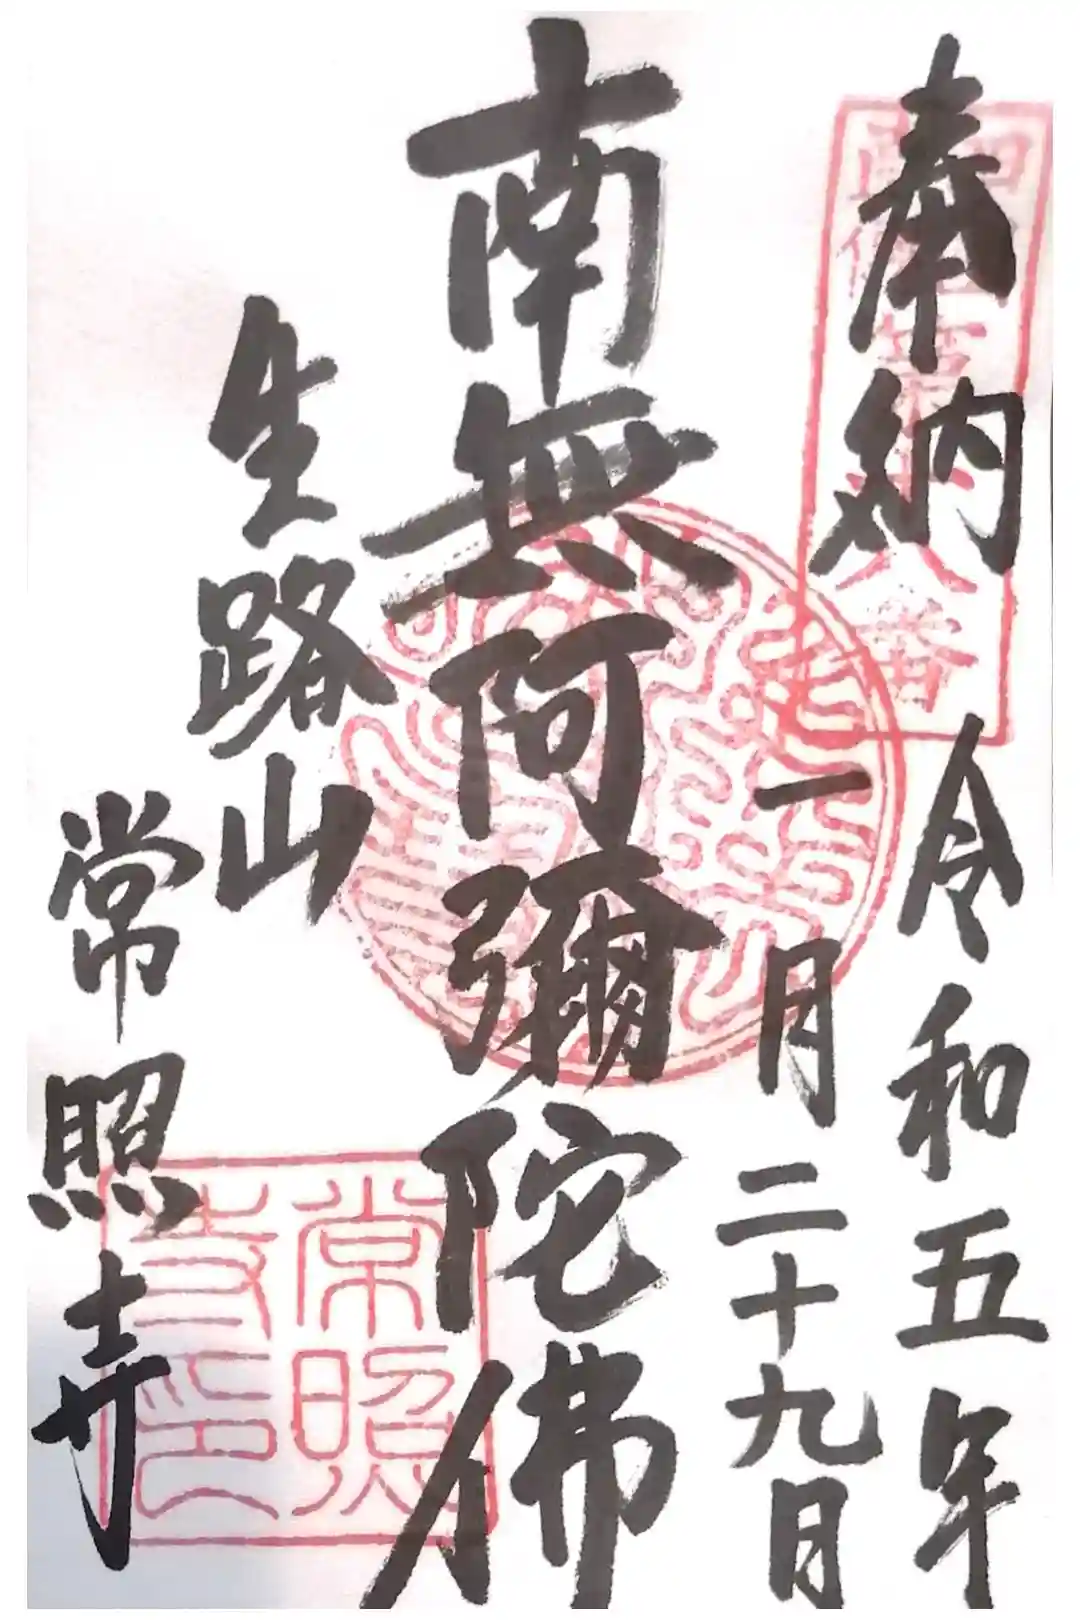 奉納
令和五年
一月二十九日
南無阿彌陀佛
生路山
常照寺
常照寺印